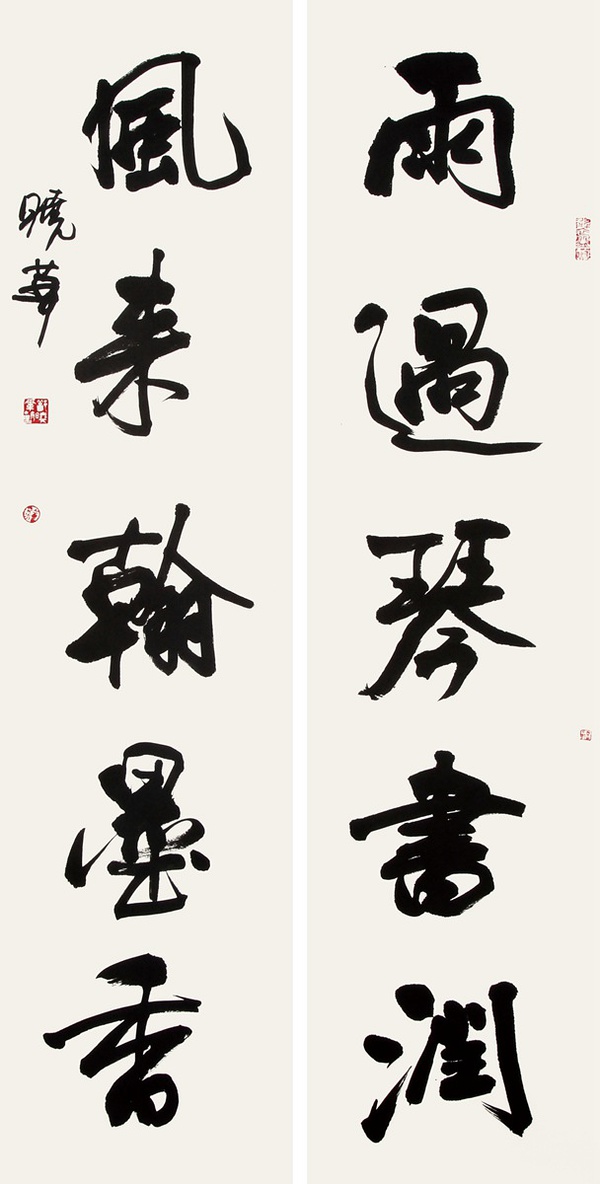 雨過琴書潤
風来翰墨香
曉華